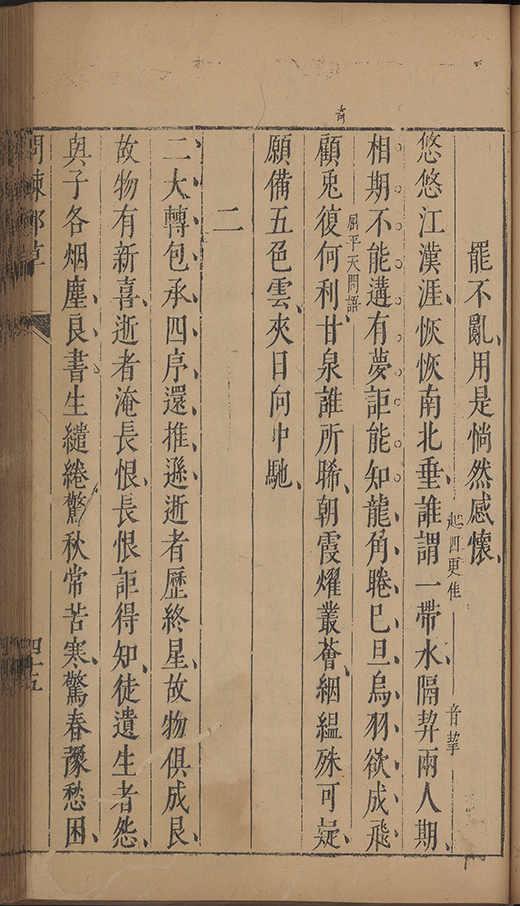 罷不亂用是惝然感懷
悠悠江漢涯恢恢南北垂誰謂一帶水隔葬兩人期
起四更佳
音挈
相期不能遘有夢詎能知龍角騰已旦烏羽欲成飛
奇
顧兎復何利甘泉誰所晞朝霞燿叢薈絪縕殊可疑
屈平天問語
願備五色雲夾日向中馳
二
二大轉包承四序還推遜逝者歷終星故物俱成艮
故物有新喜逝者淹長恨長恨詎得知徒遺生者怨
與子各烟塵良書生繾綣驚秋常苦寒驚春豫愁困
問棘郵草
四十五